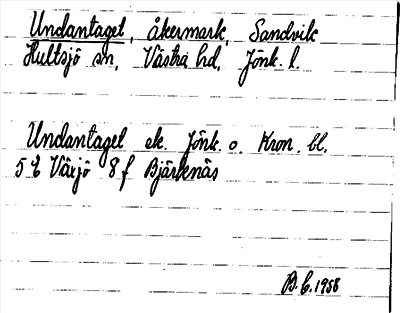 Undantaget, åkermark, Sandvik
Hultsjö sn, Västra hd, Jönk. l.
Undantaget ek. Jönk. o. Kron. bl.
5 E Växjö 8 f Bjärkenäs
B. E. 1958